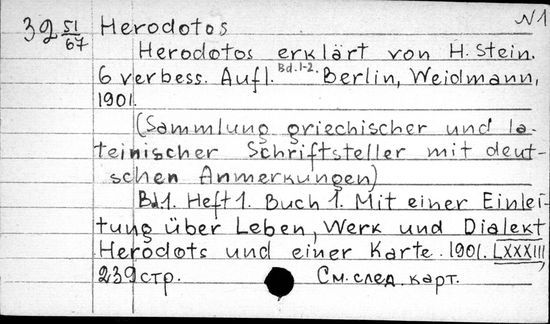 N1
39 51/67 Herodotos
Herodotos erklärt von H. Stein.
6 verbess. Aufl. Bd.1-2. Berlin, Weidmann,
1901.
(Sammlung griechischer und la-
teinischer Schriftsteller mit deut-
schen Anmerkungen)
Bd1. Heft 1. Buch 1. Mit einer Einlei-
tung über Leben, Werk und Dialekt
Herodots und einer Karte. 1901. LXXXIII,
239 стр.
См. след. карт.